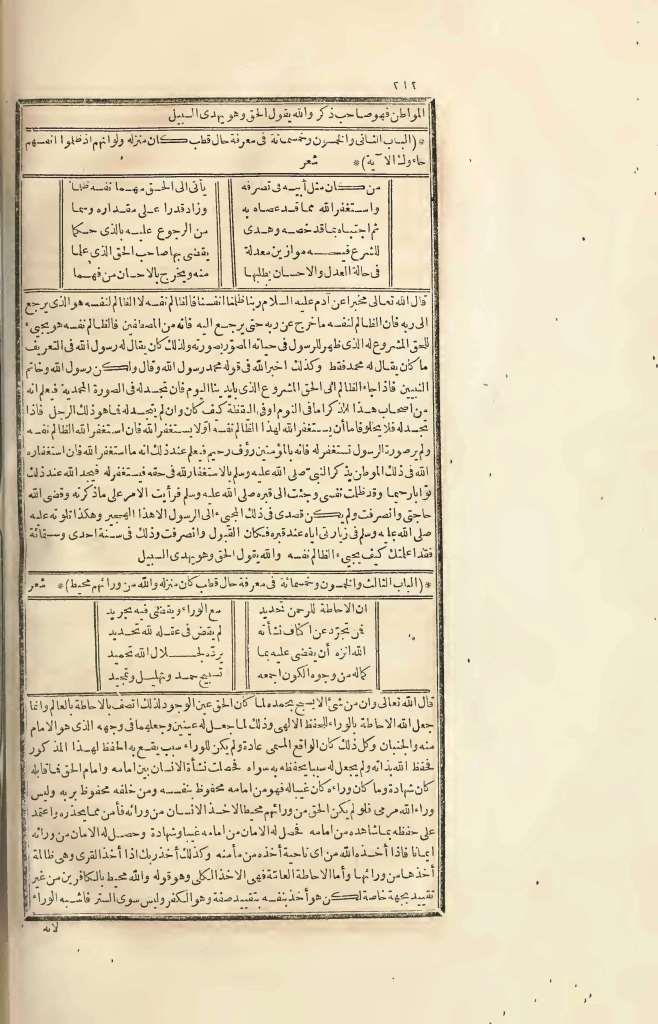 ٢١٢
المواطن فهو صاحب ذكر والله يقول الحق وهو يهدى السبيل
* (الباب الثانى والخمسون وخمسمائة فى معرفة حال قطب كان منزله ولو انهم اذ ظلموا انفسهم
جاءوك الآية) * شعر
من كان مثل أبيه فى تصرفه يأتى الى الحق مهما نفسه ظلما
واستغفر الله مما قد عصاه به وزاد قدرا على مقداره وسما
ثم اجتباه بما قد خصه وهدى من الرجوع عليه بالذى حكما
للشرع فيه موازين معدلة يقضى بها صاحب الحق الذى علما
فى حالة العدل والاحسان يطلبها منه ويخرج بالاحسان من فهما
قال الله تعالى مخبرا عن آدم عليه السلام ربنا ظلمنا أنفسنا فالظالم نفسه لا الظالم لنفسه هو الذى يرجع
الى ربه فان الظالم لنفسه ما خرج عن ربه حتى يرجع اليه فانه من المصطفين فالظالم نفسه هو يجىء
للحق المشروع له الذى ظهر للرسول فى حياته المصوّر بصورته ولذلك كان يقال له رسول الله فى التعريف
ما كان يقال له محمد فقط وكذلك اخبر الله فى قوله محمد رسول الله وقال ولكن رسول الله وخاتم
النبيين فاذا جاء الظالم الى الحق المشروع الذى بايدينا اليوم فان تجسد له فى الصورة المحمدية فيعلم انه
من اصحاب هذا الذكر اما فى النوم او فى اليقظة كيف كان وان لم يتجسد له فما هو ذلك الرجل فاذا
تجسد له فلا يخلو فاما أن يستغفر الله لهذا الظالم نفسه أولا يستغفر الله فان استغفر الله الظالم نفسه
ولم ير صورة الرسول تستغفر له فانه بالمؤمنين رؤف رحيم فيعلم عند ذلك انه ما استغفر الله فان استغفاره
الله فى ذلك الموطن يذكر النبىّ صلى الله عليه وسلم بالاستغفار لله فى حقه فيستغفر له فيجد الله عند ذلك
توّابا رحيما وقد ظلمت نفسى وجئت الى قبره صلى الله عليه وسلم فرأيت الامر على ما ذكرته وقضى الله
حاجتى وانصرفت ولم يكن قصدى فى ذلك المجىء الى الرسول الا هذا الهجير وهكذا تلوته عليه
صلى الله عليه وسلم فى زيارتى اياه عند قبره فكان القبول وانصرفت وذلك فى سنة احدى وستمائة
فقد أعلمتك كيف يجىء الظالم نفسه والله يقول الحق وهو يهدى السبيل
* (الباب الثالث والخمسون وخمسمائة فى معرفة حال قطب كان منزله والله من ورائهم محيط) * شعر
ان الاحاطة للرحمن تحديد مع الوراء ويقضى فيه تجريد
فمن تجرّد عن اكناف نشأته لم يقض فى عقله لله تحديد
الله انزه أن يقضى عليه بما يردّه لجلال الله تحميد
كماله من وجوه الكون اجمعه تسبيح حمد وتهليل وتمجيد
قال الله تعالى وان من شئ الا يسبح بحمده لما كان الحق عين الوجود لذلك اتصف بالاحاطة بالعالم وانما
جعل الله الاحاطة بالوراء للحفظ الالهى وذلك لما جعل له عينين وجعلهما فى وجهه الذى هو الامام
منه والجنبان وكل ذلك كان الواقع المسمى عادة ولم يكن للوراء سبب يقع به الحفظ لهذا المذكور
فحفظ الله بذاته ولم يجعل له سببا يحفظه به سواه فحصلت نشأة الانسان بين امامه وامام الحق فما قابله
كان شهادة وما كان وراءه كان غيبا له فهو من امامه محفوظ بنفسه ومن خلفه محفوظ بربه وليس
وراء الله مرمى فلو لم يكن الحق من ورائهم محيطا لاخذ الانسان من ورائه فأمن مما يحذره واعتمد
على حفظه بما شاهده من امامه فحصل له الامان من امامه غيبا وشهادة وحصل له الامان من ورائه
ايمانا فاذا أخذه الله من اى ناحية أخذه من مأمنه وكذلك أخذ ربك اذا أخذ القرى وهى ظالمة
أخذها من ورائها وأما الاحاطة العامّة فهى الاخذ الكلى وهو قوله والله محيط بالكافرين من غير
تقييد بجهة خاصة لكن هو أخذ بنفسه بتقييد صفة وهو الكفر وليس سوى الستر فاشبه الوراء
لانه